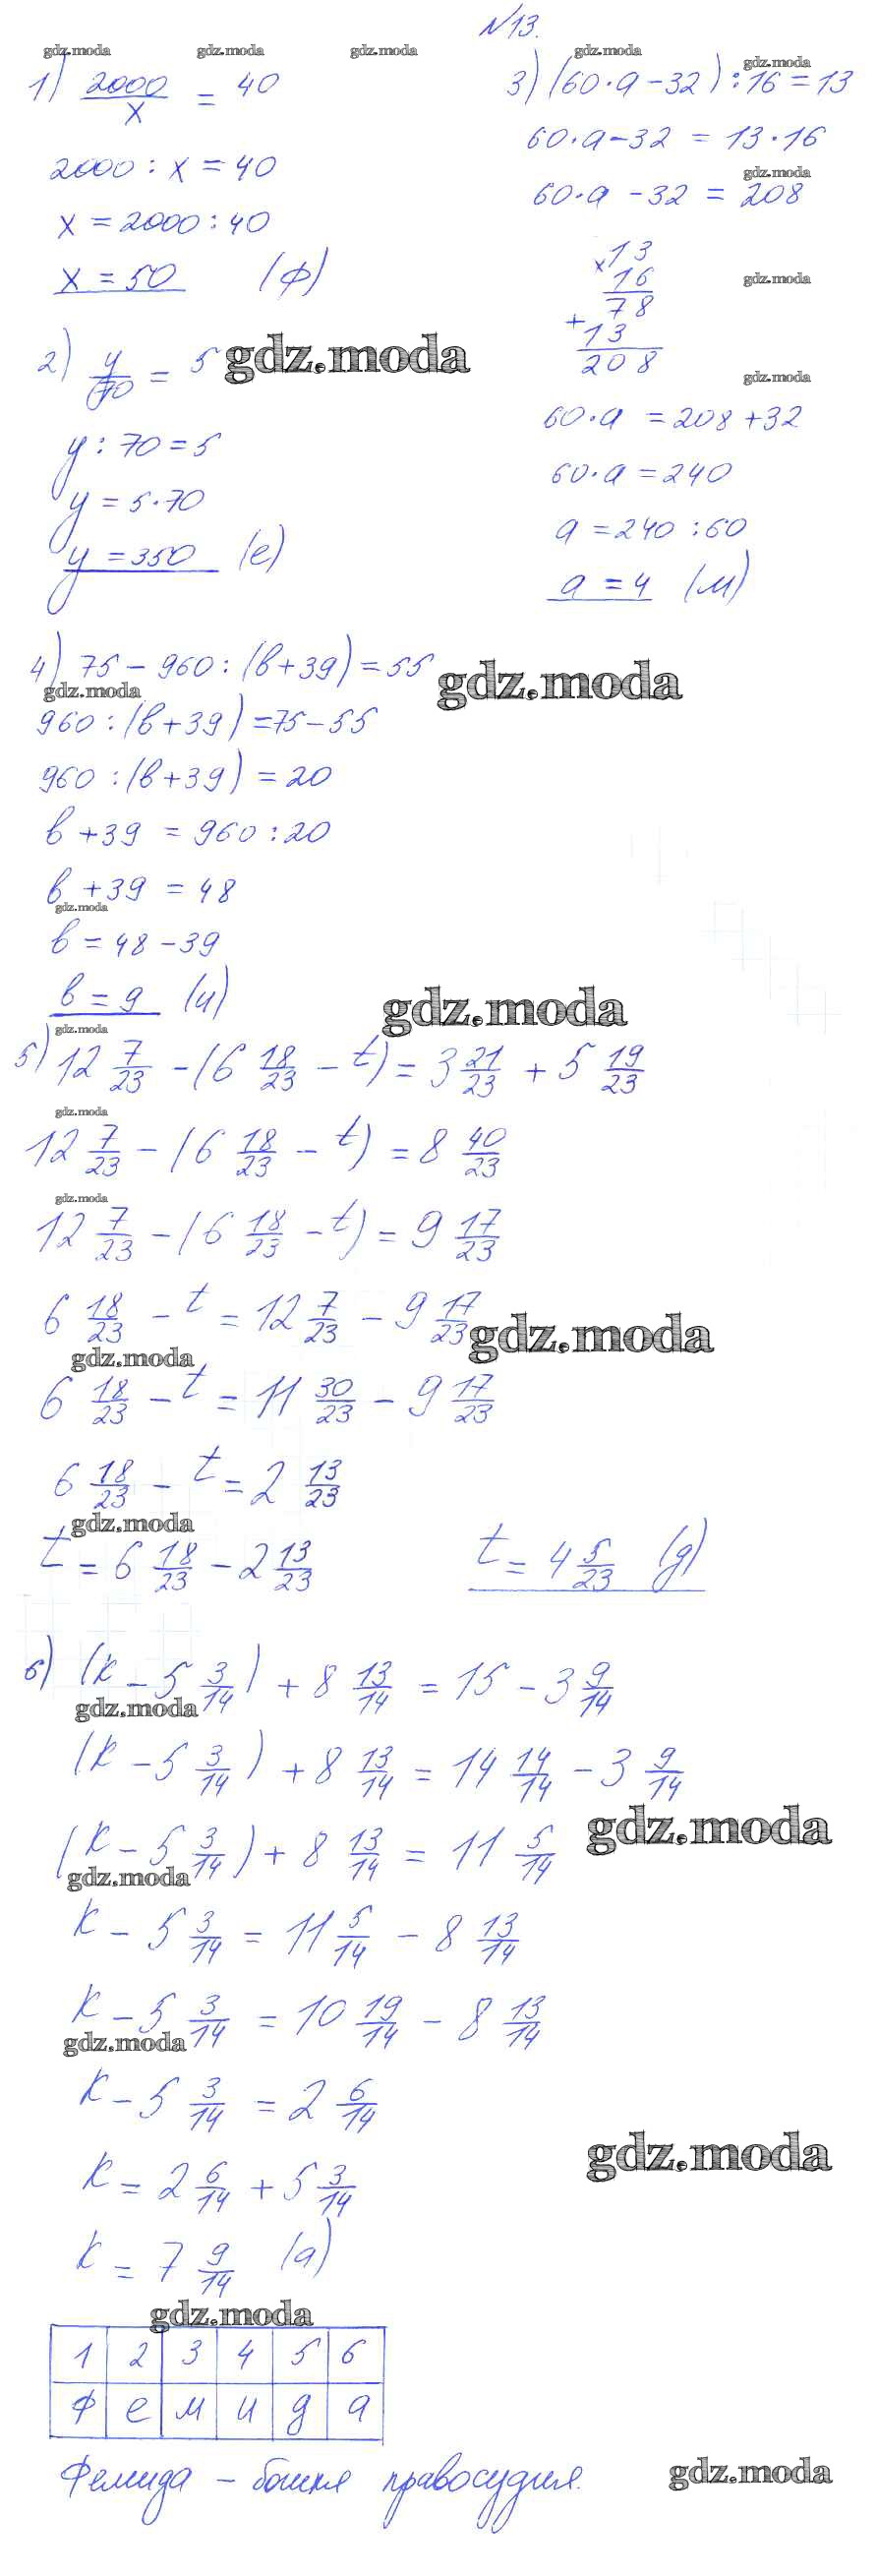 №13.
gdz.moda gdz.moda gdz.moda gdz.moda gdz.moda
1) 2000/x = 40
2000 : x = 40
x = 2000 : 40
x = 50 (ф)
2) y/70 = 5
gdz.moda
y : 70 = 5
y = 5·70
y = 350 (е)
3) (60·a-32) : 16 = 13
60·a-32 = 13·16
gdz.moda
60·a - 32 = 208
×13
16
gdz.moda
78
+13
208
gdz.moda
60·a = 208 + 32
60·a = 240
a = 240 : 60
a = 4 (м)
4) 75 - 960 : (в + 39) = 55
gdz.moda
gdz.moda
960 : (в + 39) = 75 - 55
960 : (в + 39) = 20
в + 39 = 960 : 20
в + 39 = 48
gdz.moda
в = 48 - 39
в = 9 (и)
gdz.moda
gdz.moda
5) 12 7/23 - (6 18/23 - t) = 3 21/23 + 5 19/23
gdz.moda
12 7/23 - (6 18/23 - t) = 8 40/23
gdz.moda
12 7/23 - (6 18/23 - t) = 9 17/23
6 18/23 - t = 12 7/23 - 9 17/23
gdz.moda
gdz.moda
6 18/23 - t = 11 30/23 - 9 17/23
6 18/23 - t = 2 13/23
gdz.moda
t = 6 18/23 - 2 13/23 t = 4 5/23 (д)
6) (k - 5 3/14) + 8 13/14 = 15 - 3 9/14
gdz.moda
(k - 5 3/14) + 8 13/14 = 14 14/14 - 3 9/14
gdz.moda
(k - 5 3/14) + 8 13/14 = 11 5/14
gdz.moda
k - 5 3/14 = 11 5/14 - 8 13/14
k - 5 3/14 = 10 19/14 - 8 13/14
gdz.moda
k - 5 3/14 = 2 6/14
gdz.moda
k = 2 6/14 + 5 3/14
k = 7 9/14 (а)
gdz.moda
1 2 3 4 5 6
Ф е м и д а
Фемида - богиня правосудия.
gdz.moda